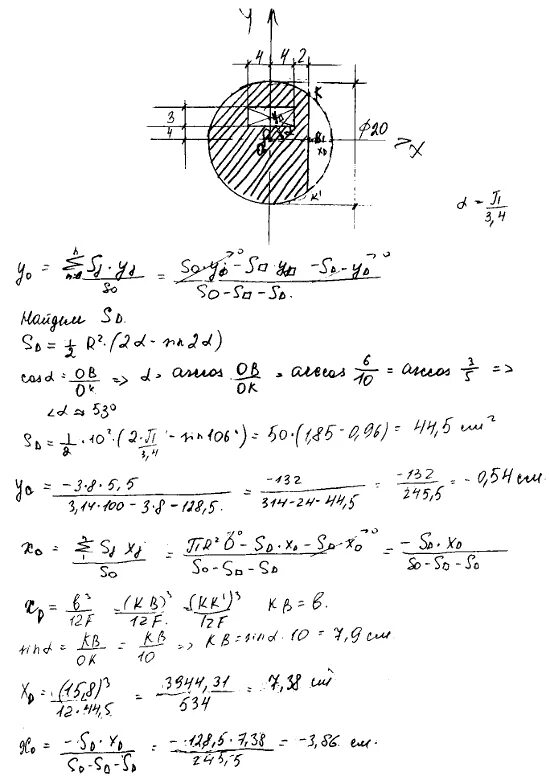 Y
4 4 2
K
3
4
φ20
X
K'
α = П/3,4
y₀ = Σ Sj · yj / S₀ = (S₀ · y₀ - S□ · y□ - S_D - y_D) / (S₀ - S□ - S_D)
Найдем S_D.
S_D = 1/2 R² · (2α - sin 2α)
cos α = OB/OK => α = arccos OB/OK = arccos 6/10 = arccos 3/5 =>
∠α ≈ 53°
S_D = 1/2 · 10² · (2 · П/3,4 - sin 106°) = 50 · (1,85 - 0,96) = 44,5 см²
y₀ = (-3·8·5,5) / (3,14·100 - 3·8 - 128,5) = -132 / (314 - 24 - 44,5) = -132 / 245,5 = -0,54 см.
x₀ = Σ Sj xj / S₀ = (ПR² · 0 - S_D · x_D - S_D · x₀) / (S₀ - S□ - S_D) = -S_D · x_D / (S₀ - S□ - S_D)
x_D = b³/12F = (KB)³/12F = (KK')³/12F KB = b.
sin α = KB/OK = KB/10 => KB = sin α · 10 = 7,9 см.
X_D = (15,8)³ / (12·44,5) = 3944,31 / 534 = 7,38 см
x₀ = -S_D · X_D / (S₀ - S□ - S_D) = -128,5 · 7,38 / 245,5 = -3,86 см.